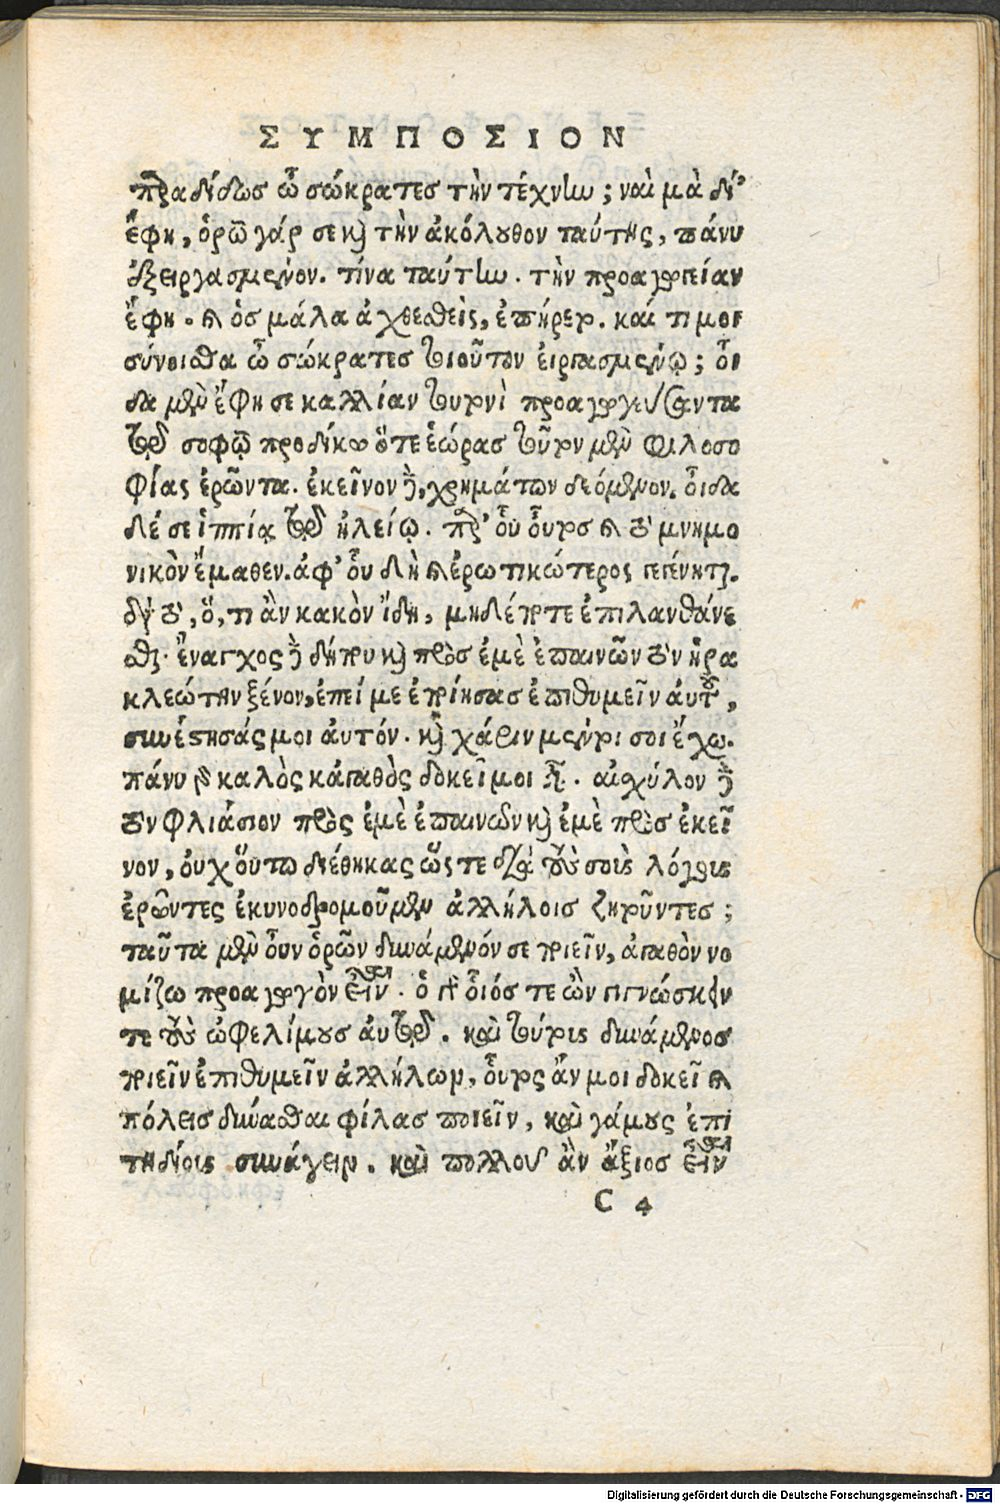 ΣΥΜΠΟΣΙΟΝ
παραδίδως ὦ σώκρατες τὴν τέχνην; ναὶ μὰ δί'
ἔφη, ὁρῶ γάρ σε καὶ τὴν ἀκόλουθον ταύτης, πάνυ
ἐξειργασμένον. τίνα ταύτην. τὴν προαγωγείαν
ἔφη. καὶ ὃς μάλα ἀχθεσθεὶς, ἐπήρετο. καὶ τί μοι
σύνοισθα ὦ σώκρατες τοιοῦτον εἰργασμένῳ; οἶ
δα μὲν ἔφη σε καλλίαν τουτονὶ προαγωγεύσαντα
τῷ σοφῷ προδίκῳ ὅτε ἑώρας τοῦτον μὲν φιλοσο
φίας ἐρῶντα. ἐκεῖνον δὲ, χρημάτων δεόμενον. οἶδα
δέ σε ἱππίᾳ τῷ ἠλείῳ. παρ' οὗ οὗτος καὶ τὸ μνημο
νικὸν ἔμαθεν. ἀφ' οὗ δὴ καὶ ἐρωτικώτερος γεγένηται.
διὰ τὸ, ὅ, τι ἂν κακὸν ἴδῃ, μηδέποτε ἐπιλανθάνε
σθαι. ἔναγχος δὲ δήπου καὶ πρὸς ἐμὲ ἐπαινῶν τὸν ἡρα
κλεώτην ξένον, ἐπεί με ἐποίησας ἐπιθυμεῖν αὐτοῦ,
συνέστησάς μοι αὐτόν. καὶ χάριν μέντοι σοι ἔχω.
πάνυ γὰρ καλὸς κἀγαθὸς δοκεῖ μοι εἶναι. αἰσχύλον δὲ
τὸν φλιάσιον πρὸς ἐμὲ ἐπαινῶν καὶ ἐμὲ πρὸς ἐκεῖ
νον, οὐχ οὕτω διέθηκας ὥστε διὰ τοὺς σοὺς λόγους
ἐρῶντες ἐκυνοδρομοῦμεν ἀλλήλοις ζητοῦντες;
ταῦτα μὲν οὖν ὁρῶν δυνάμενόν σε ποιεῖν, ἀγαθὸν νο
μίζω προαγωγὸν εἶναι. ὁ γὰρ οἷός τε ὢν γιγνώσκειν
τε τοὺς ὠφελίμους αὐτῷ. καὶ τούτους δυνάμενος
ποιεῖν ἐπιθυμεῖν ἀλλήλων, οὗτος ἄν μοι δοκεῖ καὶ
πόλεις δύνασθαι φίλας ποιεῖν, καὶ γάμους ἐπι
τηδείους συνάγειν. καὶ πολλοῦ ἂν ἄξιος εἶναι
C 4
Digitalisierung gefördert durch die Deutsche Forschungsgemeinschaft - DFG